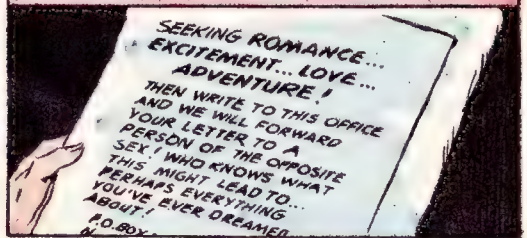 SEEKING ROMANCE...
EXCITEMENT... LOVE...
ADVENTURE!
THEN WRITE TO THIS OFFICE
AND WE WILL FORWARD
YOUR LETTER TO A
PERSON OF THE OPPOSITE
SEX! WHO KNOWS WHAT
THIS MIGHT LEAD TO...
PERHAPS EVERYTHING
YOU'VE EVER DREAMED
ABOUT!
P.O. BOX